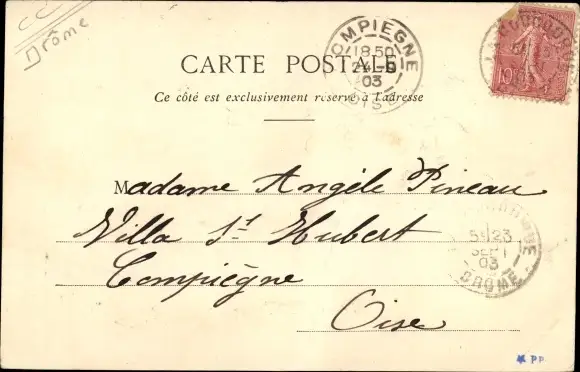 CC
Drôme
COMPIEGNE
18 50
24 -9
03
OISE
10
CARTE POSTALE
Ce côté est exclusivement réservé à l'adresse
Madame Angèle Pineau
Villa St Hubert
Compiègne
Oise
5E 23
SEPT
03
DROME
PP